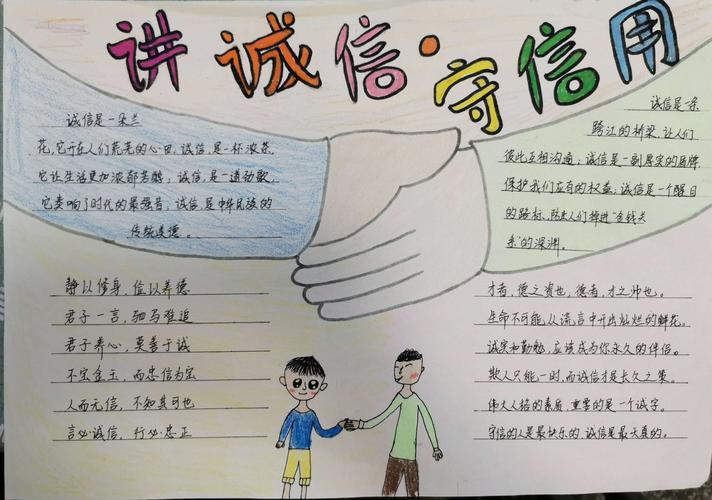 讲诚信·守信用
诚信是一朵兰
花,它开在人们荒芜的心田,诚信,是一杯浓茶,
它让生活更加浓郁芳醇;诚信,是一道动歌,
它奏响了时代的最强音;诚信,是中华民族的
传统美德。
诚信是一条
跨江的桥梁,让人们
彼此互相沟通;诚信是一副厚实的盾牌,
保护我们应有的权益;诚信是一个醒目
的路标,防止人们掉进"金钱关
系"的深渊。
静以修身,俭以养德
君子一言,驷马难追
君子养心,莫善于诚
不宝金玉,而忠信为宝
人而无信,不知其可也
言必诚信,行必忠正
才者,德之资也;德者,才之帅也。
生命不可能从谎言中开出灿烂的鲜花。
诚实和勤勉,应该成为你永久的伴侣。
欺人只能一时,而诚信才是长久之策。
伟大人格的素质,重要的是一个诚字。
守信的人是最快乐的,诚信是最天真的。